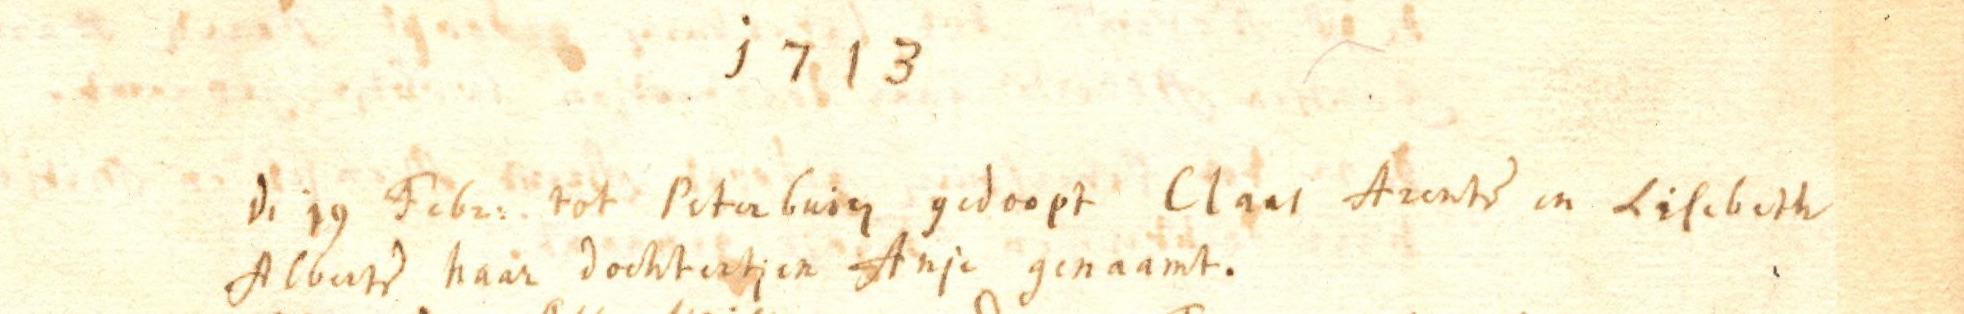 1713
De 19 Febr: tot Peterbuirn gedoopt Claas Arents en Lisebeth
Alberts haar dochtertjen Anje genaamt.